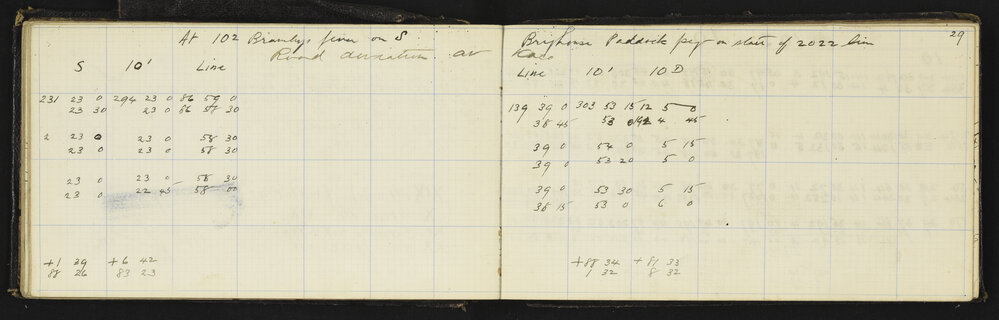 At 102 Bramleys fence on S.
Road deviation av
S 10' Line
231 23 0 294 23 0 86 59 0
23 30 23 0 86 58 30
2 23 0 23 0 58 30
23 0 23 0 58 30
23 0 23 0 58 30
23 0 22 45 58 00
+1 39 +6 42
88 26 83 23
29
Brighouse Paddock peg on start of 2022 line
Line 10' 10D
139 39 0 303 53 15 12 5 0
38 45 53 0 4 45
39 0 54 0 5 15
39 0 53 20 5 0
39 0 53 30 5 15
38 15 53 0 6 0
+88 34 +81 33
1 32 8 32